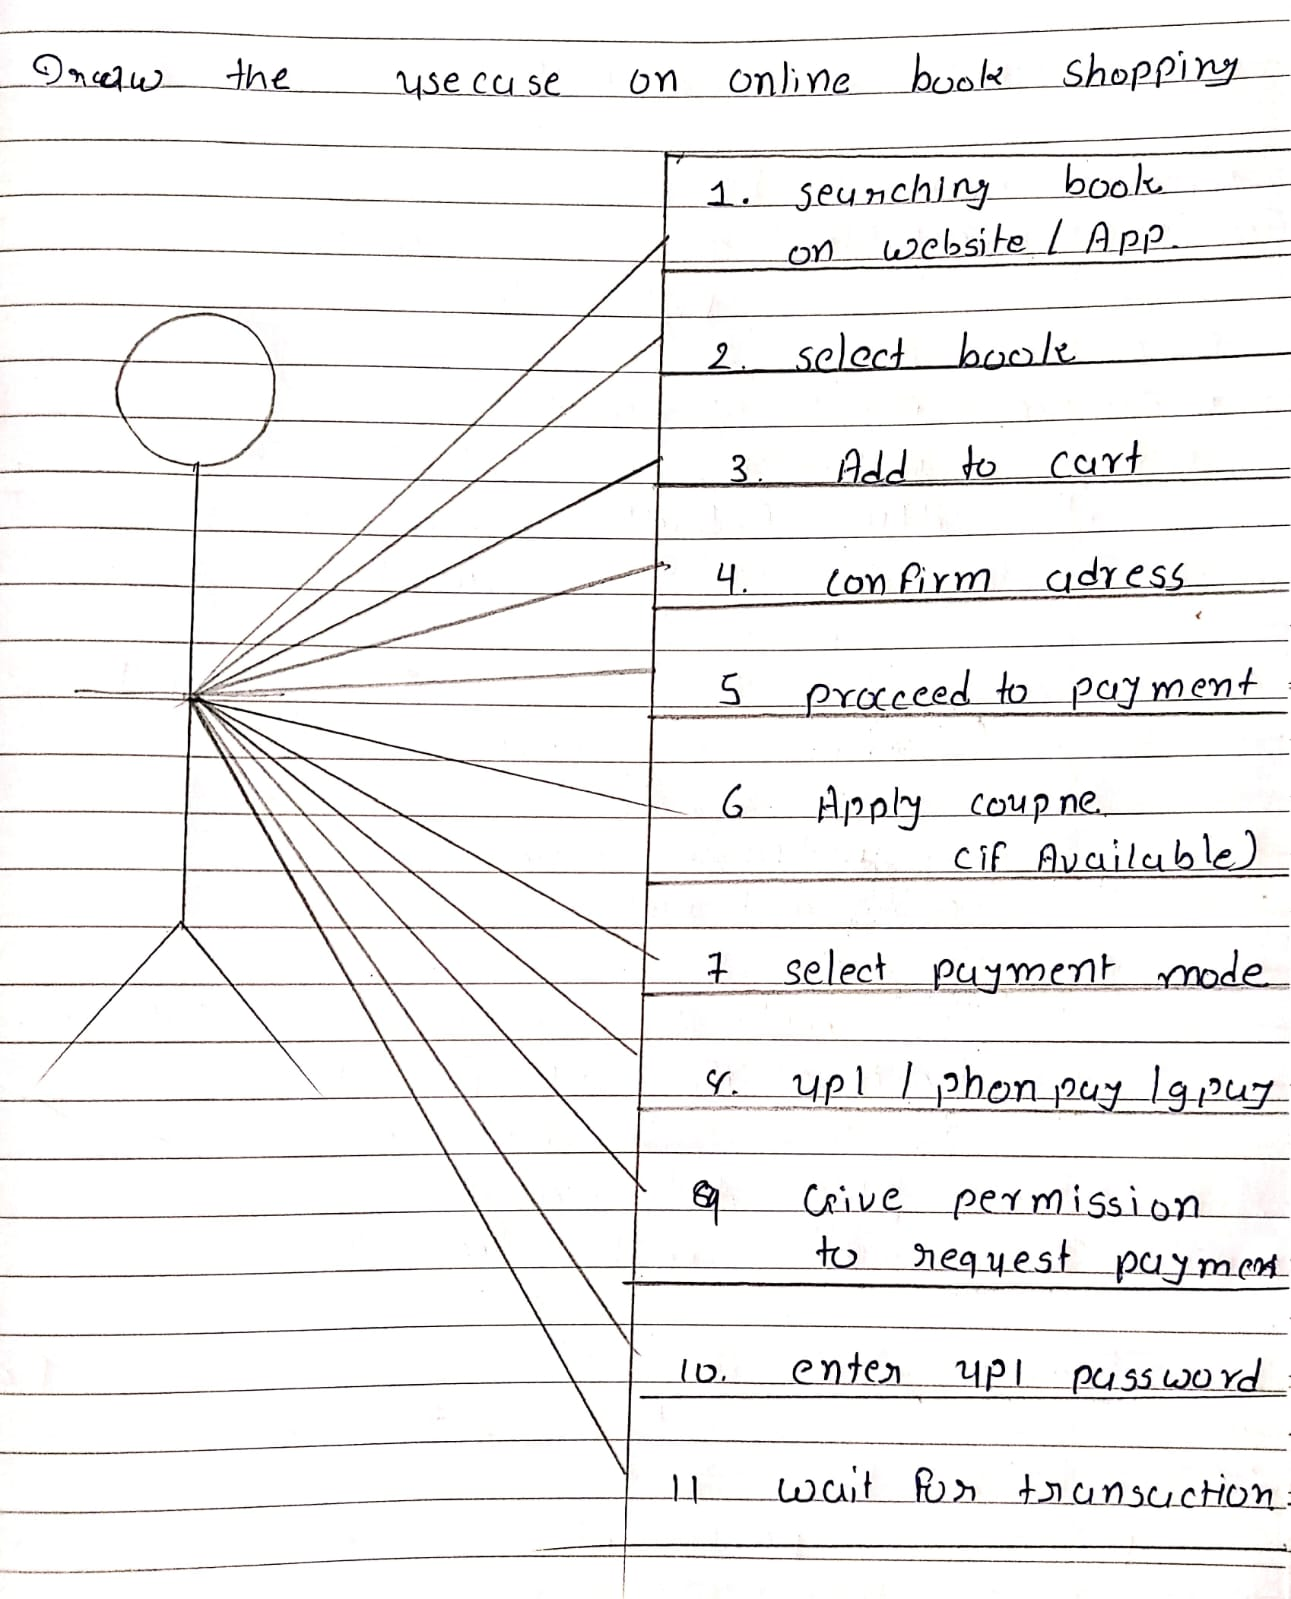 Draw the usecase on online book shopping
1. searching book
on website / App.
2. select book
3. Add to cart
4. confirm adress
5 procceed to payment
6 Apply coupne
(if Available)
7 select payment mode
8. upI / phon pay / gpay
9 Give permission
to request payment
10. enter upI password
11 wait for transaction